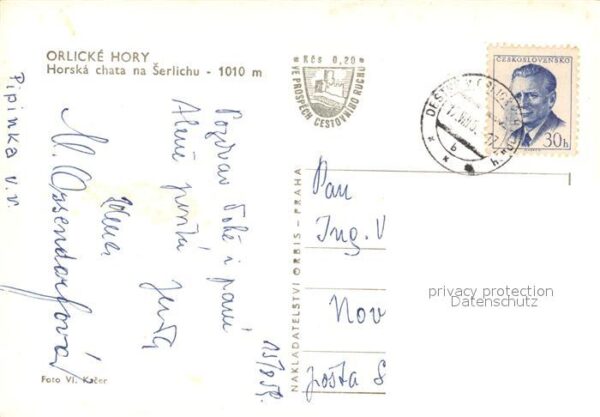 ORLICKÉ HORY
Horská chata na Šerlichu - 1010 m
Kčs 0,20
VE PROSPĚCH CESTOVNÍHO RUCHU
ČESKOSLOVENSKO
30h
b
Pozdrav Tobě i paní
Aleně posílá
Jenda
Hana
M. Ossendorfová
Pipinka v.r.
15/8 59.
NAKLADATELSTVÍ ORBIS - PRAHA
Pan
Ing. V
Nov
pošta S
privacy protection
Datenschutz
Foto Vl. Kačer